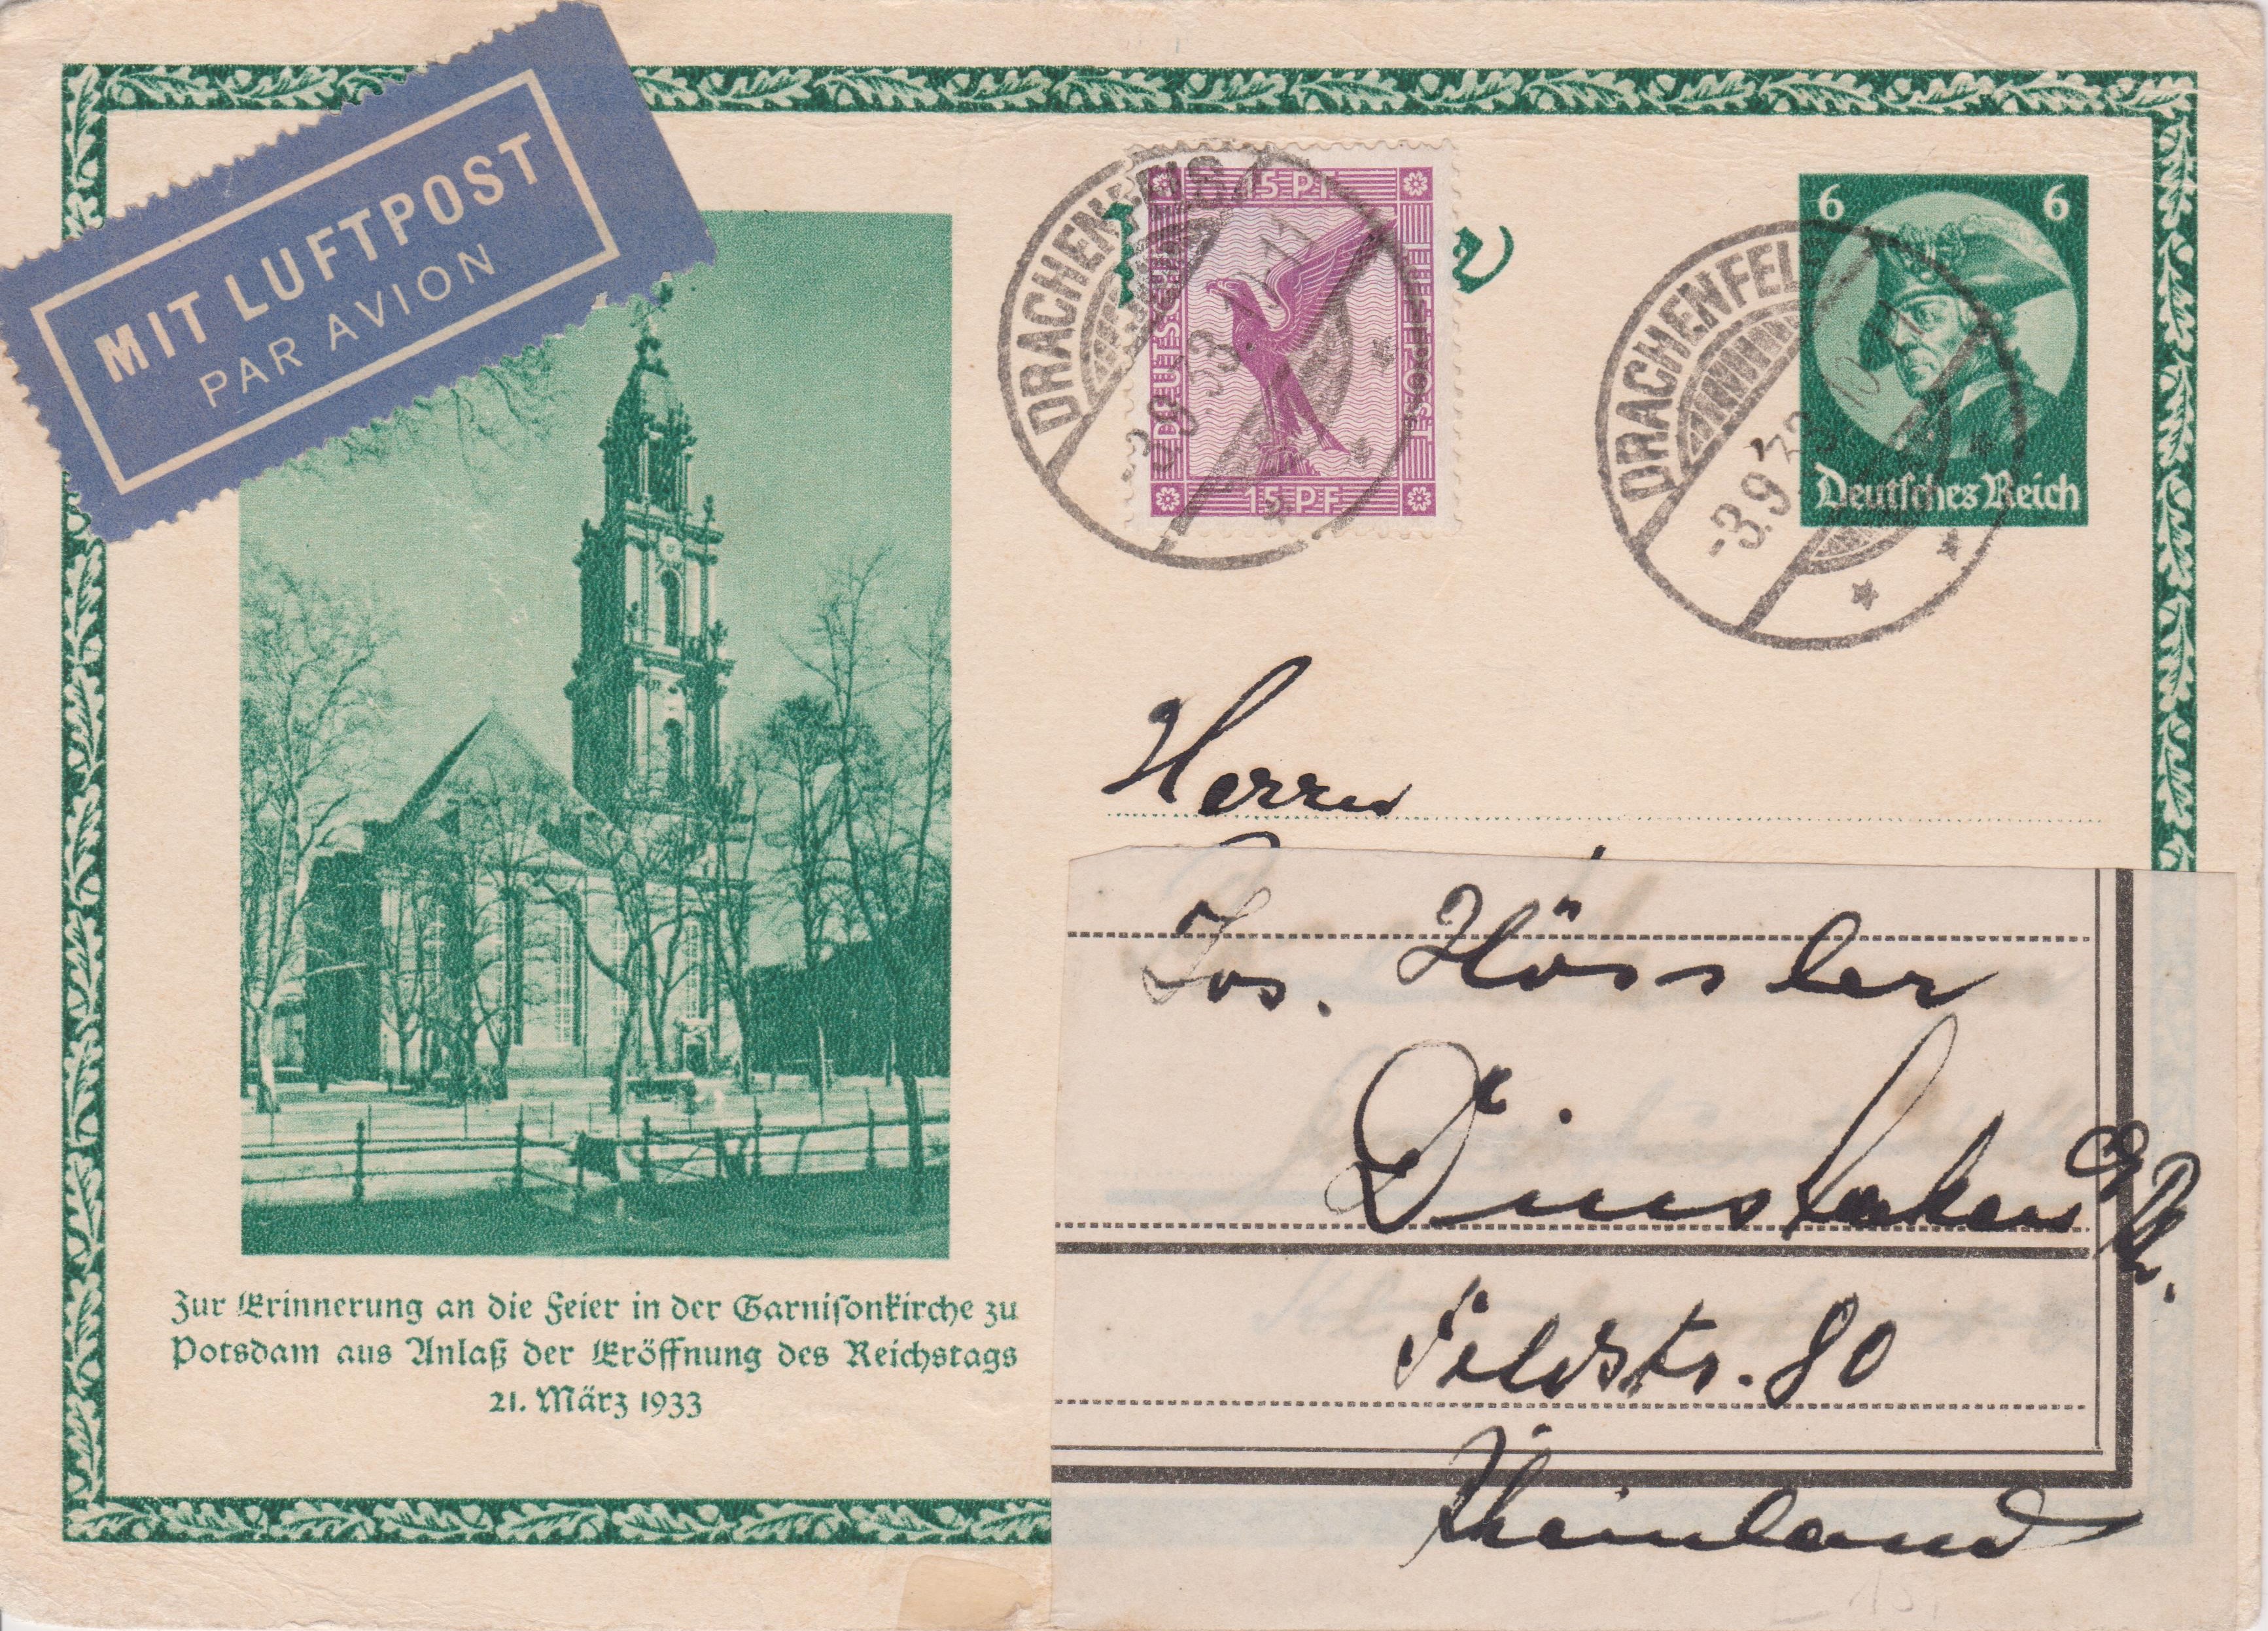 MIT LUFTPOST
PAR AVION
DRACHENFELS
15 PF
DEUTSCHE
LUFTPOST
15 PF
DRACHENFELS
-3.9.33. 10
6 6
Deutsches Reich
Herrn
Jos. Hössler
Dinslaken
Feldstr. 80
Rheinland
Zur Erinnerung an die Feier in der Garnisonkirche zu
Potsdam aus Anlaß der Eröffnung des Reichstags
21. März 1933